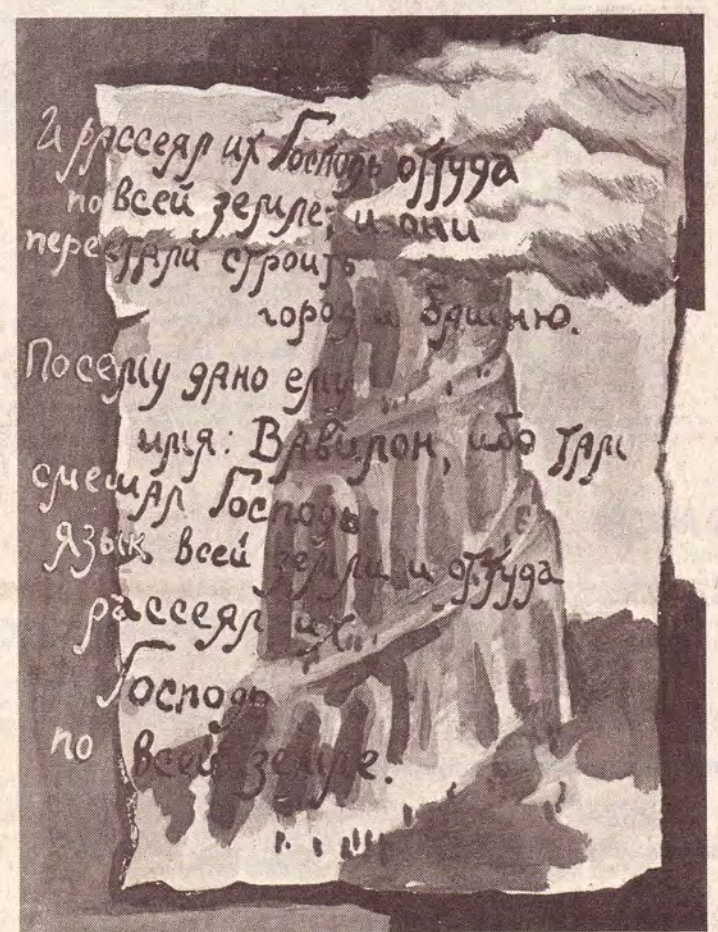 И рассеял их Господь оттуда
по всей земле; и они
перестали строить
город и башню.
Посему дано ему
имя: Вавилон, ибо там
смешал Господь
язык всей земли и оттуда
рассеял их
Господь
по всей земле.